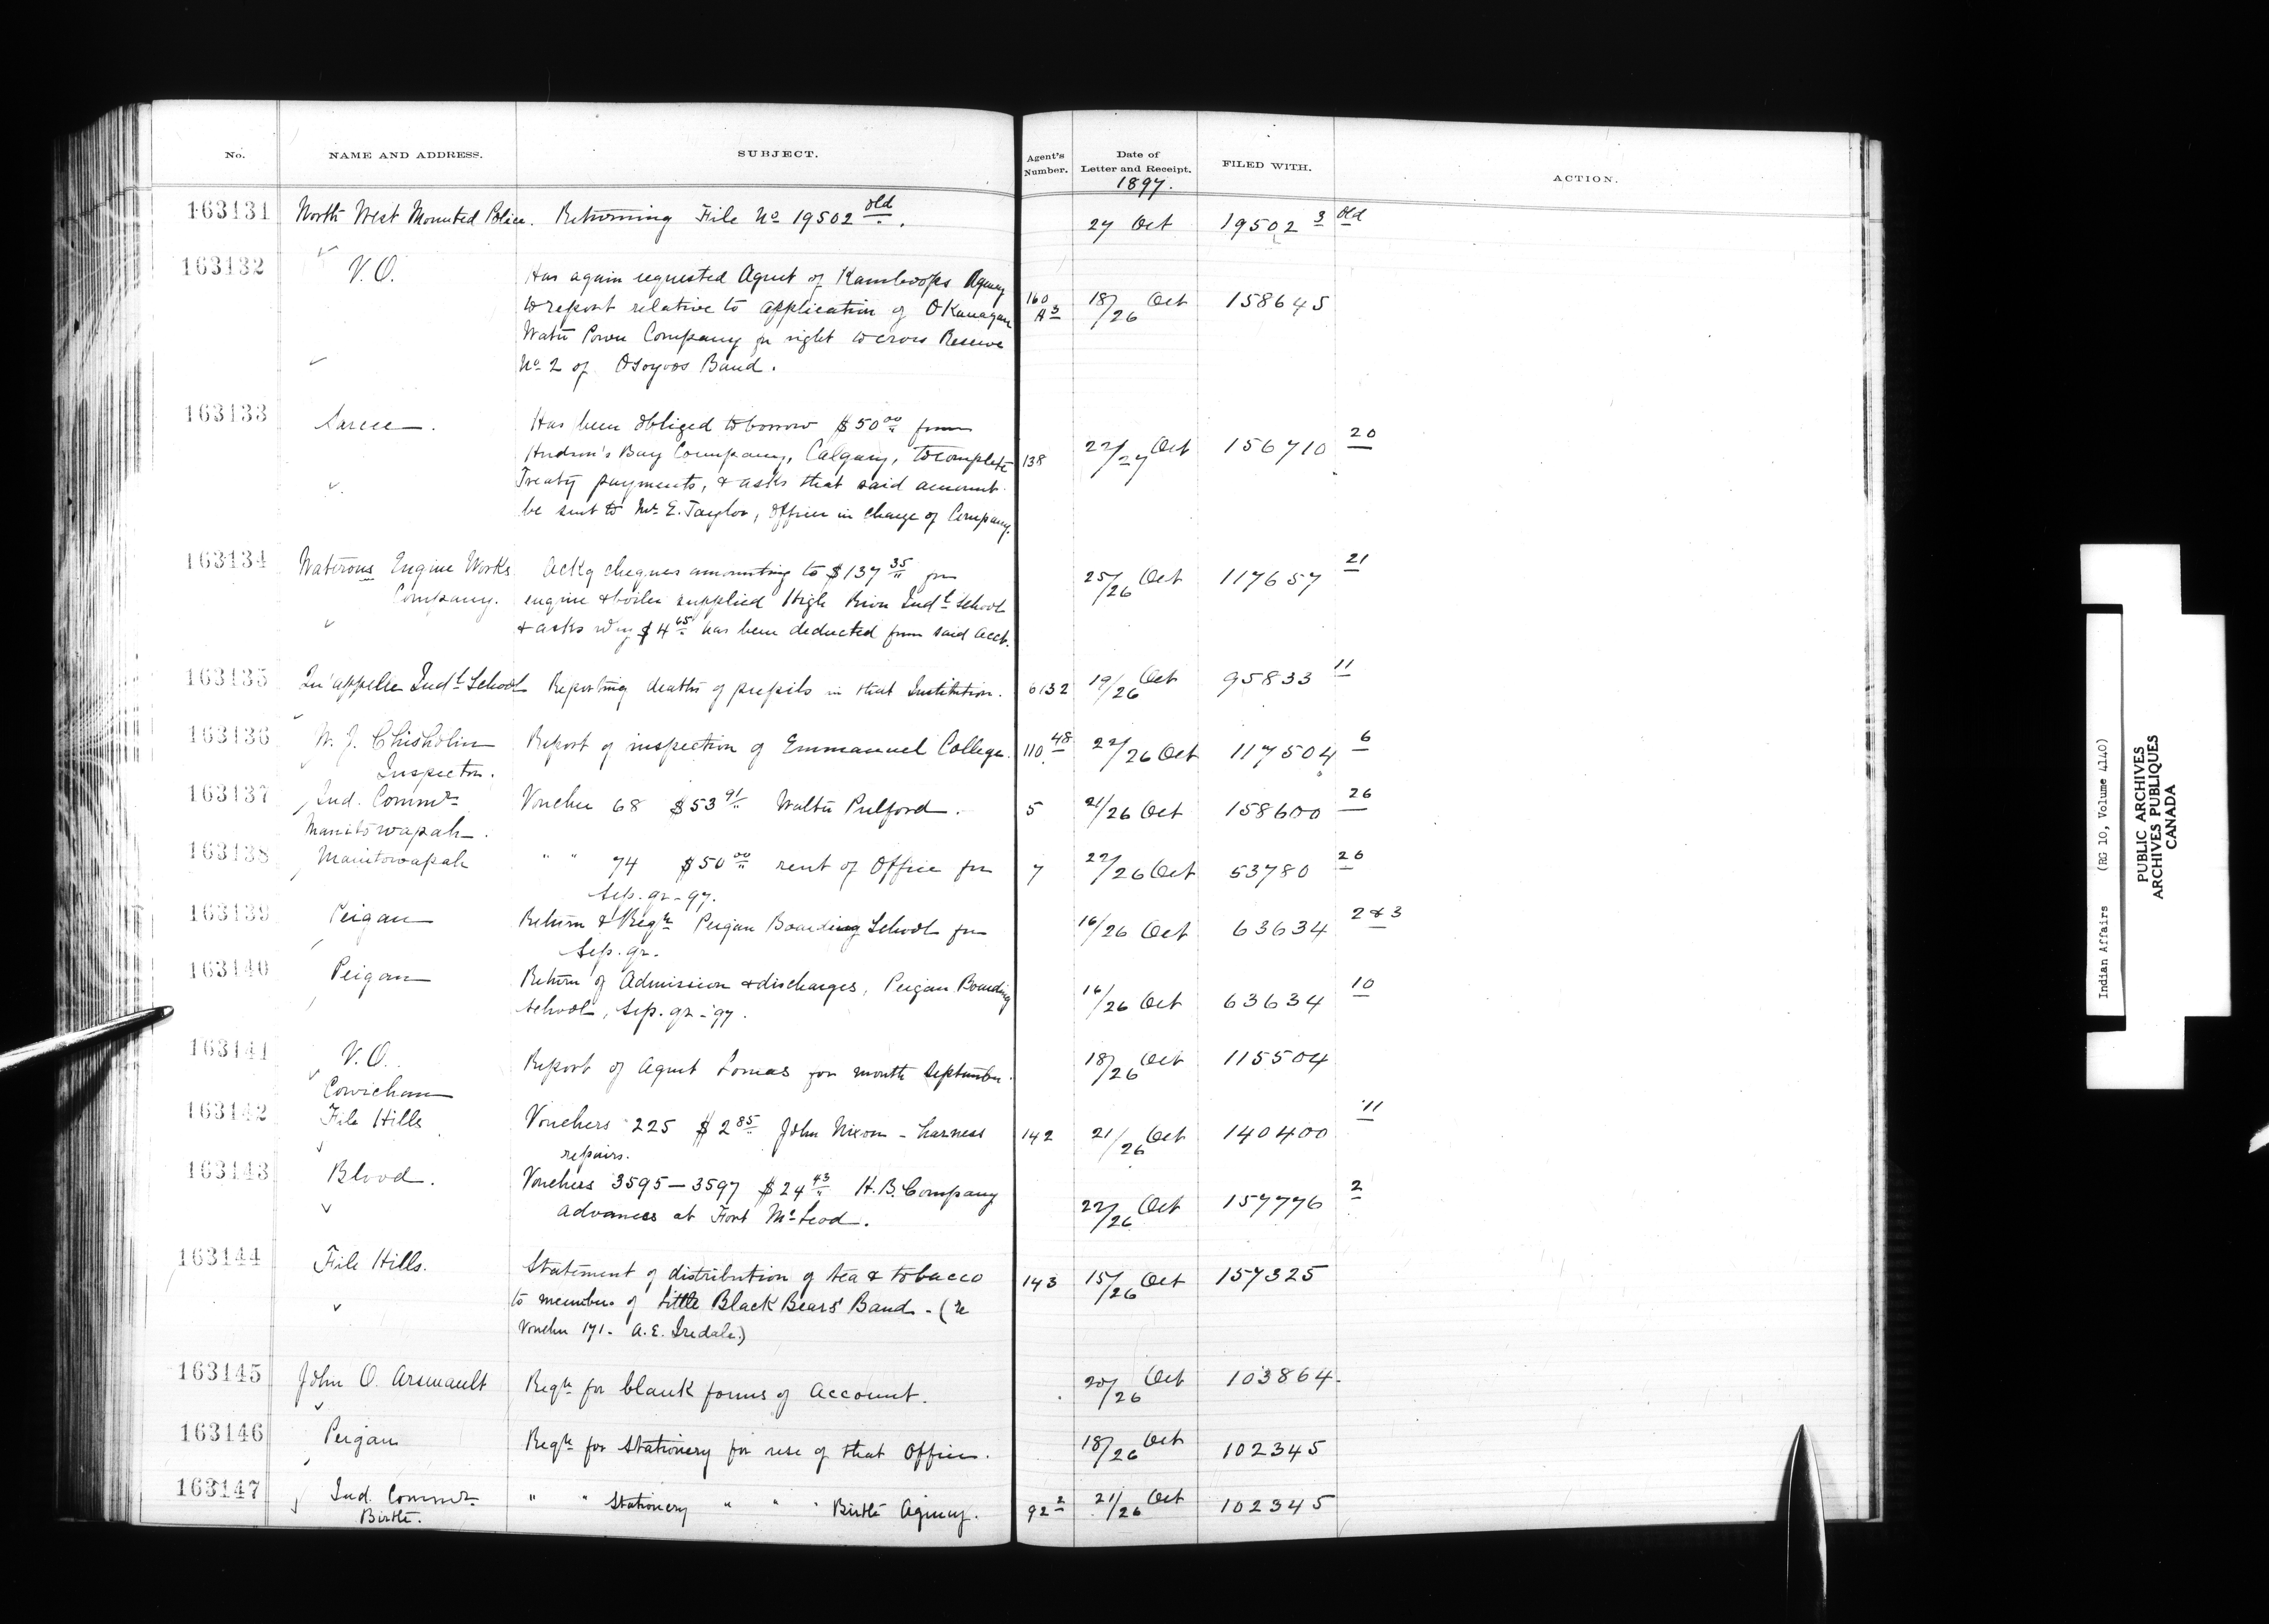 No. NAME AND ADDRESS. SUBJECT. Agent's Number. Date of Letter and Receipt. FILED WITH. ACTION.
1897.
163131 North West Mounted Police. Returning File No 19502 old. 27 Oct 19502 3 old
163132 V.O. Has again requested Agent of Kamloops Agency
to report relative to application of OKanagan 160 A3 18/26 Oct 158645
Water Power Company for right to cross Reserve
No 2 of Osoyoos Band.
163133 Sarcee. Has been obliged to borrow $50 00 from
Hudson's Bay Company, Calgary, to complete 138 22/27 Oct 156710 20
Treaty payments, & asks that said amount
be sent to Mr. E. Taylor, Officer in charge of Company.
163134 Waterous Engine Works Ackg cheques amounting to $137 35 for 25/26 Oct 117657 21
Company. engine & boiler supplied High River Indl School
& asks why $4 65 has been deducted from said acct.
163135 Qu'appelle Indl School Reporting deaths of pupils in that Institution. 6132 19/26 Oct 95833 11
163136 W. J. Chisholm Report of inspection of Emmanuel College. 110 48 22/26 Oct 117504 6
Inspector.
163137 Ind. Commr Voucher 68 $53 91 Walter Pulford. 5 21/26 Oct 158600 26
Manitowapah.
163138 Manitowapah " " 74 $50 00 rent of Office for 7 22/26 Oct 53780 26
Sep. qr - 97.
163139 Peigan Return & Regr Peigan Boarding School for 16/26 Oct 63634 2 & 3
Sep. qr.
163140 Peigan Return of Admission & discharges, Peigan Boarding 16/26 Oct 63634 10
School, Sep. qr - 97.
163141 V.O. Report of Agent Lomas for month September. 18/26 Oct 115504
Cowichan
163142 File Hills Vouchers 225 $2 85 John Nixon - harness 142 21/26 Oct 140400 11
repairs.
163143 Blood. Vouchers 3595 - 3597 $24 43 H. B. Company 22/26 Oct 157776 2
advances at Fort McLeod.
163144 File Hills. Statement of distribution of tea & tobacco 143 15/26 Oct 157325
to members of Little Black Bears' Band - (re
Voucher 171 - A. E. Iredale.)
163145 John O. Arsenault Reqn for blank forms of Account. 20/26 Oct 103864
163146 Peigan Reqn for Stationery for use of that Office. 18/26 Oct 102345
163147 Ind. Commr " " Stationery " " " Birtle Agency. 92 2 21/26 Oct 102345
Birtle.
Indian Affairs (RG 10, Volume 4140)
PUBLIC ARCHIVES
ARCHIVES PUBLIQUES
CANADA